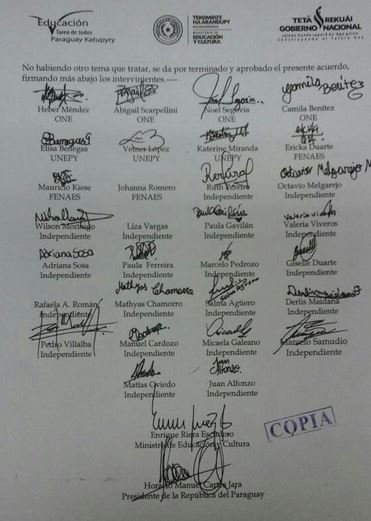 Educación
Tarea de todos
Paraguay Katupyry
TEKOMBO'E
HA ARANDUPY
MINISTERIO DE
EDUCACIÓN
Y CULTURA
TETÃ REKUÁI
GOBIERNO NACIONAL
No habiendo otro tema que tratar, se da por terminado y aprobado el presente acuerdo,
firmando más abajo los intervinientes.----
Yamila Benítez
Heber Méndez Abigail Scarpellini Noel Segovia Camila Benítez
ONE ONE ONE ONE
Elisa Benegas Vetner López Katerine Miranda Ericka Duarte
UNEPY UNEPY UNEPY UNEPY
Octavio Melgarejo M
Mauricio Kiese Johanna Romero Ruth Pereira Octavio Melgarejo
FENAES FENAES Independiente Independiente
Valeria Viveros
Wilson Morínigo Liza Vargas Paula Gavilán Valeria Viveros
Independiente Independiente Independiente Independiente
Adriana Sosa
Adriana Sosa Paula Ferreira Marcelo Pedrozo Giselle Duarte
Independiente Independiente Independiente Independiente
Mathyas Chamorro
Rafaela A. Román Mathyas Chamorro Salma Agüero Derlis Maidana
Independiente Independiente Independiente Independiente
Pedro Villalba Manuel Cardozo Micaela Galeano Marcelo Samudio
Independiente Independiente Independiente Independiente
Juan Alfonzo
Matías Oviedo Juan Alfonzo
Independiente Independiente
Enrique Riera Escudero
Ministro de Educación y Cultura
COPIA
Horacio Manuel Cartes Jara
Presidente de la República del Paraguay